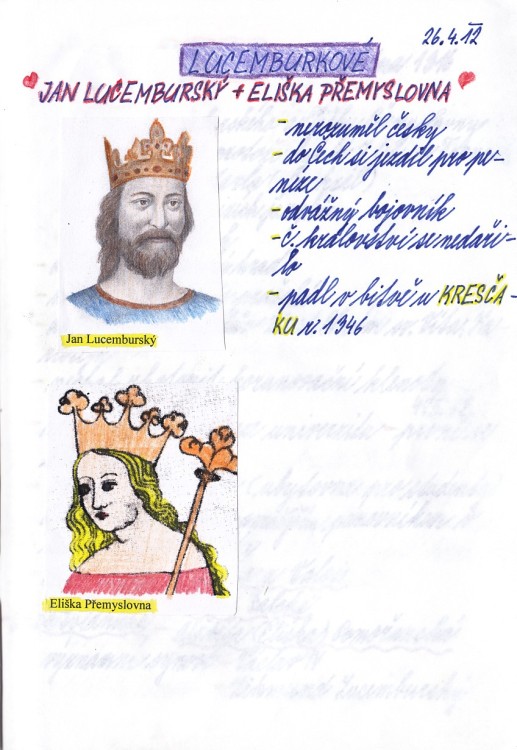 26.4.12
LUCEMBURKOVÉ
JAN LUCEMBURSKÝ + ELIŠKA PŘEMYSLOVNA
- nerozuměl česky
- do Čech si jezdil pro pe-
níze
- odvážný bojovník
- č. království se nedaři-
lo
- padl v bitvě u KRESČA-
KU r. 1346
Jan Lucemburský
Eliška Přemyslovna